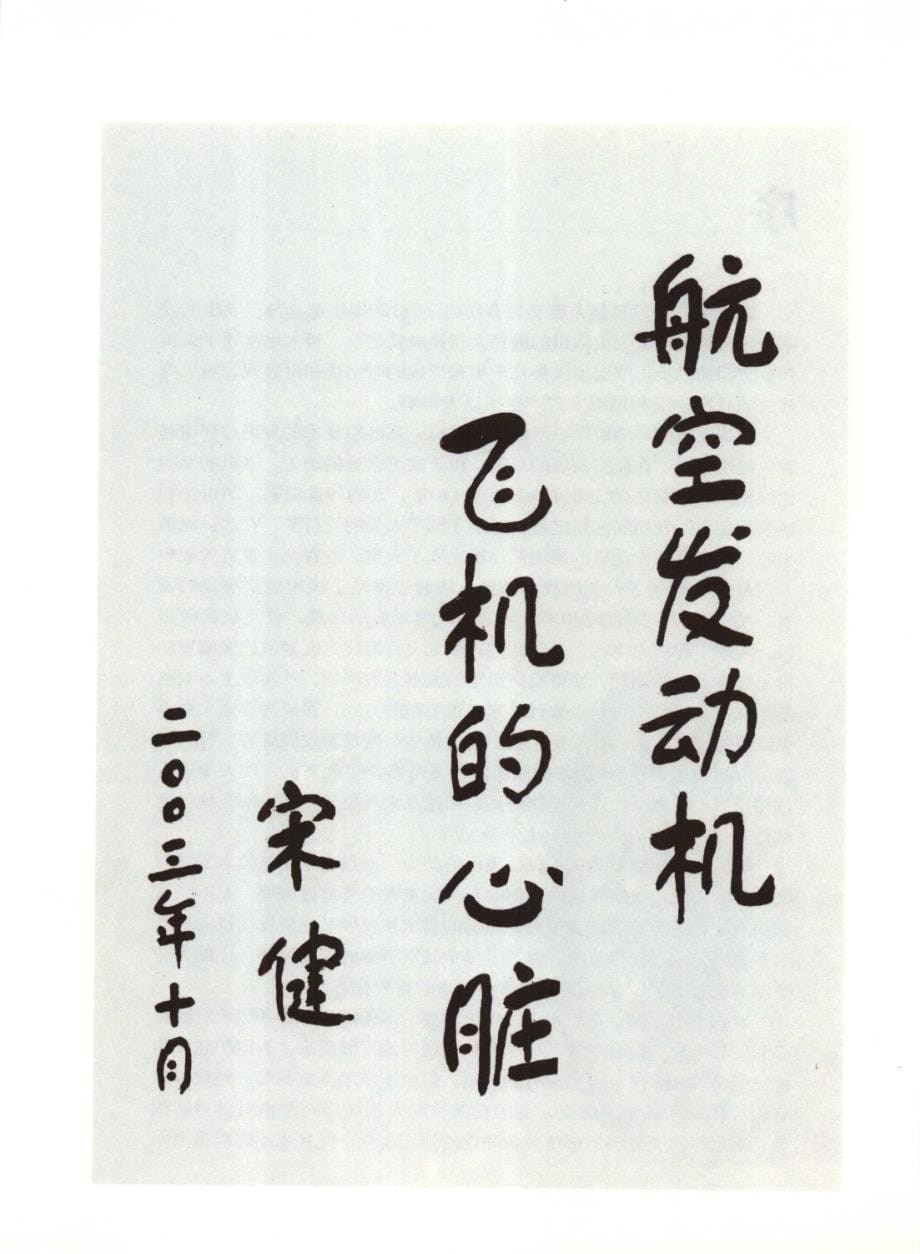 航空发动机
飞机的心脏
宋健
二〇〇三年十月